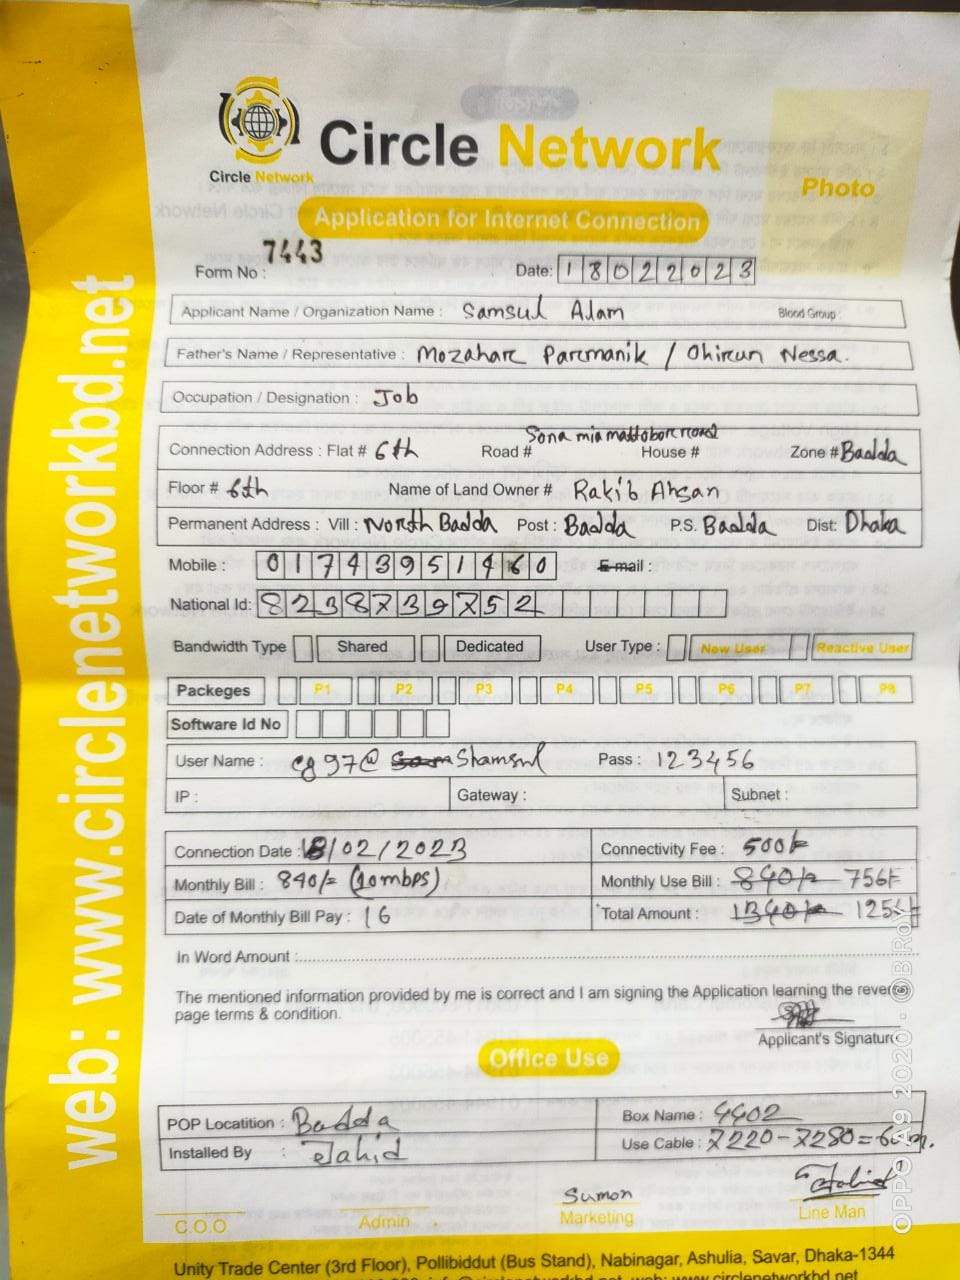 Circle Network
Circle Network
Photo
Application for Internet Connection
Form No : 7443
Date: 18022023
Applicant Name / Organization Name : Samsul Alam Blood Group :
Father's Name / Representative : Mozaharc Parcmanik / Ohircun Nessa.
Occupation / Designation : Job
Sona mia mattoborc rcoad
Connection Address : Flat # 6th Road # House # Zone # Badda
Floor # 6th Name of Land Owner # Rakib Ahsan
Permanent Address : Vill : North Badda Post : Badda P.S. Badda Dist: Dhaka
Mobile : 01743951460 E-mail :
National Id: 8238739752
Bandwidth Type Shared Dedicated User Type : New User Reactive User
Packeges P1 P2 P3 P4 P5 P6 P7 P8
Software Id No
User Name : cg97@ Shamsul Pass : 123456
IP : Gateway : Subnet :
Connection Date : 18/02/2023 Connectivity Fee : 500/=
Monthly Bill : 840/= (10mbps) Monthly Use Bill : 840/= 756/=
Date of Monthly Bill Pay : 16 Total Amount : 1340/= 1256/=
In Word Amount :
The mentioned information provided by me is correct and I am signing the Application learning the reverse
page terms & condition.
Applicant's Signature
Office Use
POP Locatition : Badda Box Name : 4402
Installed By : Jahid Use Cable : 7220-7280=60m.
Sumon
C.O.O Admin Marketing Line Man
Unity Trade Center (3rd Floor), Pollibiddut (Bus Stand), Nabinagar, Ashulia, Savar, Dhaka-1344
web: www.circlenetworkbd.net
web: www.circlenetworkbd.net
OPPO A9 2020 · @B!RoY